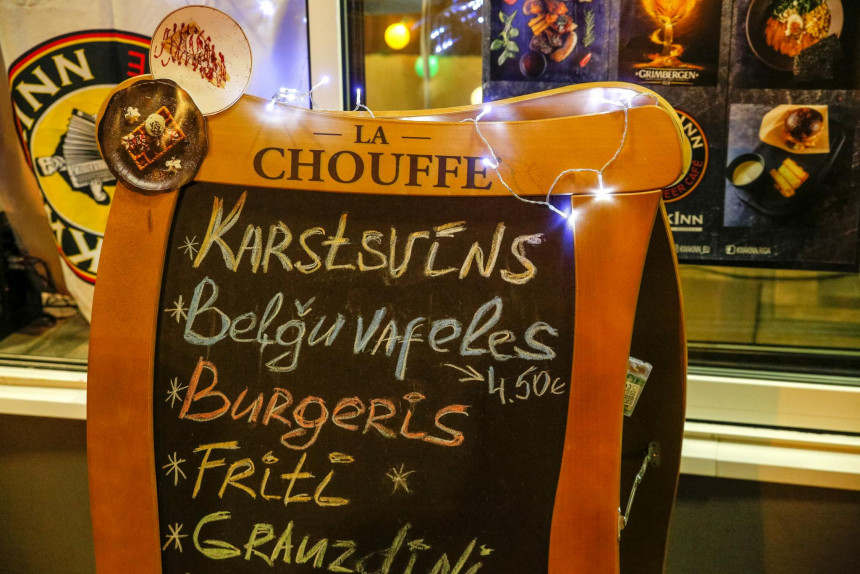 — LA —
CHOUFFE
* Karstsvīns
* Beļģu vafeles
→ 4.50€
* Burgeris
* Friti
* Grauzdiņi
INN
GRIMBERGEN
EER CAFE
KINN